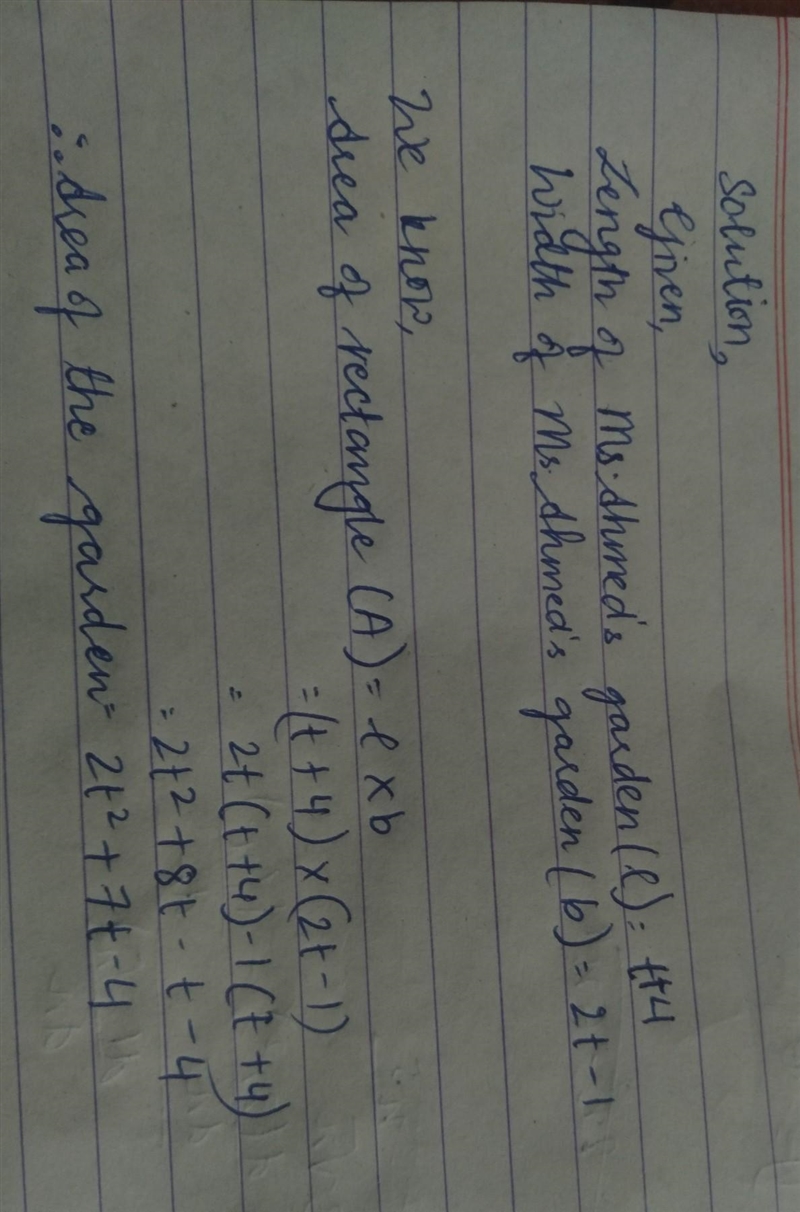 Solution,
Given,
Length of Ms. Ahmed's garden (l) = t+4
Width of Ms. Ahmed's garden (b) = 2t-1
We know,
Area of rectangle (A) = l x b
= (t+4) x (2t-1)
= 2t (t+4) -1 (t+4)
= 2t² + 8t - t - 4
∴ Area of the garden = 2t² + 7t - 4